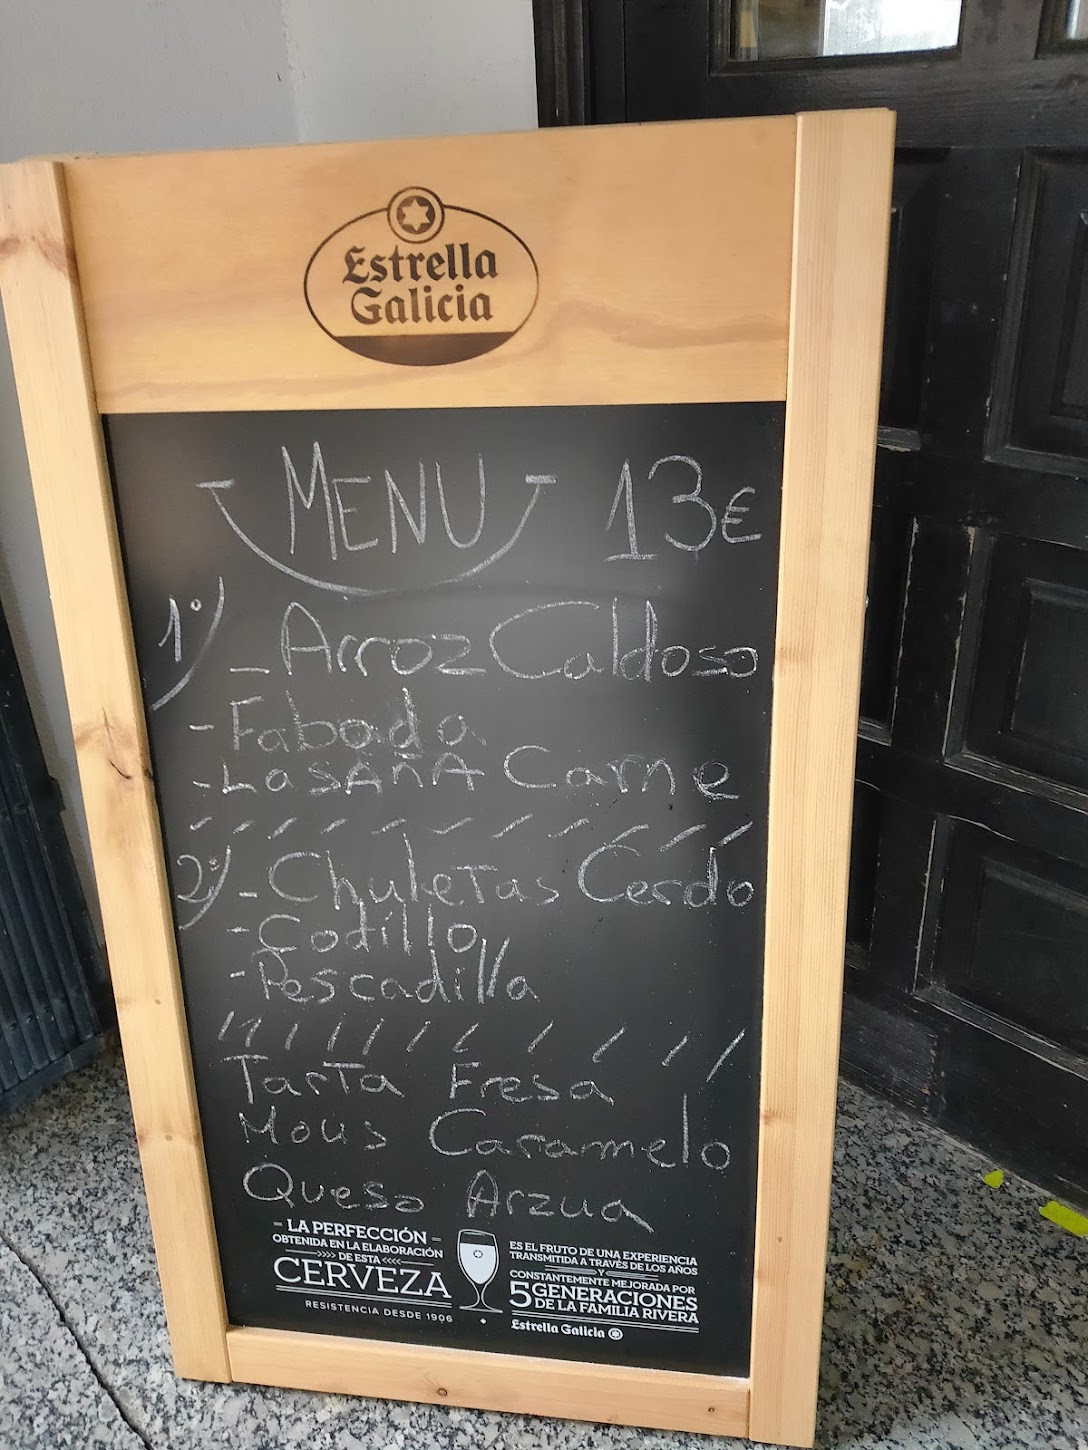 Estrella
Galicia
MENU 13€
1º) - Arroz Caldoso
- Fabada
- LASAñA Carne
2º) - Chuletas Cerdo
- Codillo
- Pescadilla
Tarta Fresa
Mous Caramelo
Queso Arzua
- LA PERFECCIÓN -
OBTENIDA EN LA ELABORACIÓN
>>>> DE ESTA <<<<
CERVEZA
RESISTENCIA DESDE 1906
ES EL FRUTO DE UNA EXPERIENCIA
TRANSMITIDA A TRAVÉS DE LOS AÑOS
Y
CONSTANTEMENTE MEJORADA POR
5 GENERACIONES
DE LA FAMILIA RIVERA
Estrella Galicia